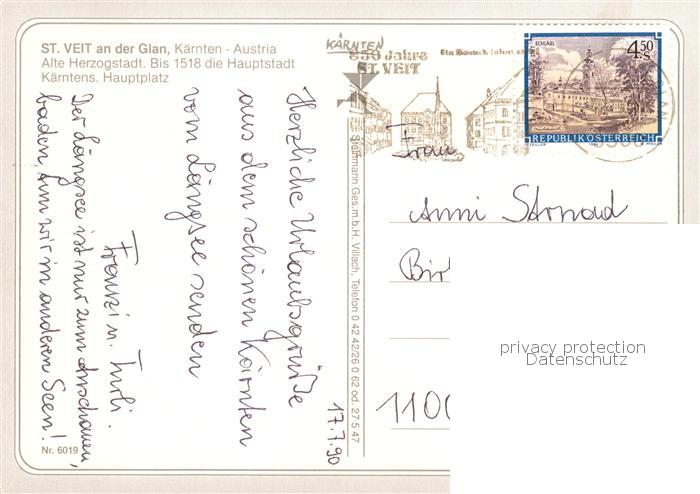 ST. VEIT an der Glan, Kärnten - Austria
Alte Herzogstadt. Bis 1518 die Hauptstadt
Kärntens. Hauptplatz
Herzliche Urlaubsgrüße
aus dem schönen Kärnten
vom Längsee senden
Franzi u. Turli.
Der Längsee ist nur zum Anschauen,
baden tun wir in anderen Seen!
17.7.90
Nr. 6019
Ges.m.b.H. Villach, Telefon 0 42 42/26 0 62 od. 27 5 47
KÄRNTEN
850 Jahre
ST. VEIT
4.50
S
REPUBLIK ÖSTERREICH
Frau
Anni Strnad
Bir
1100
privacy protection
Datenschutz